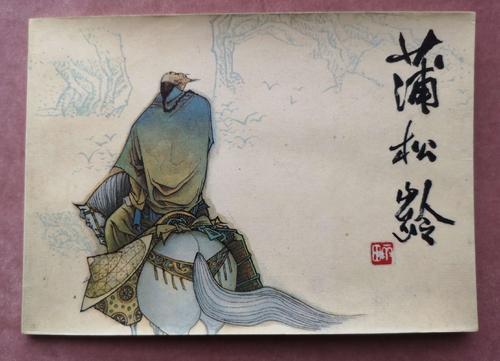 蒲松龄